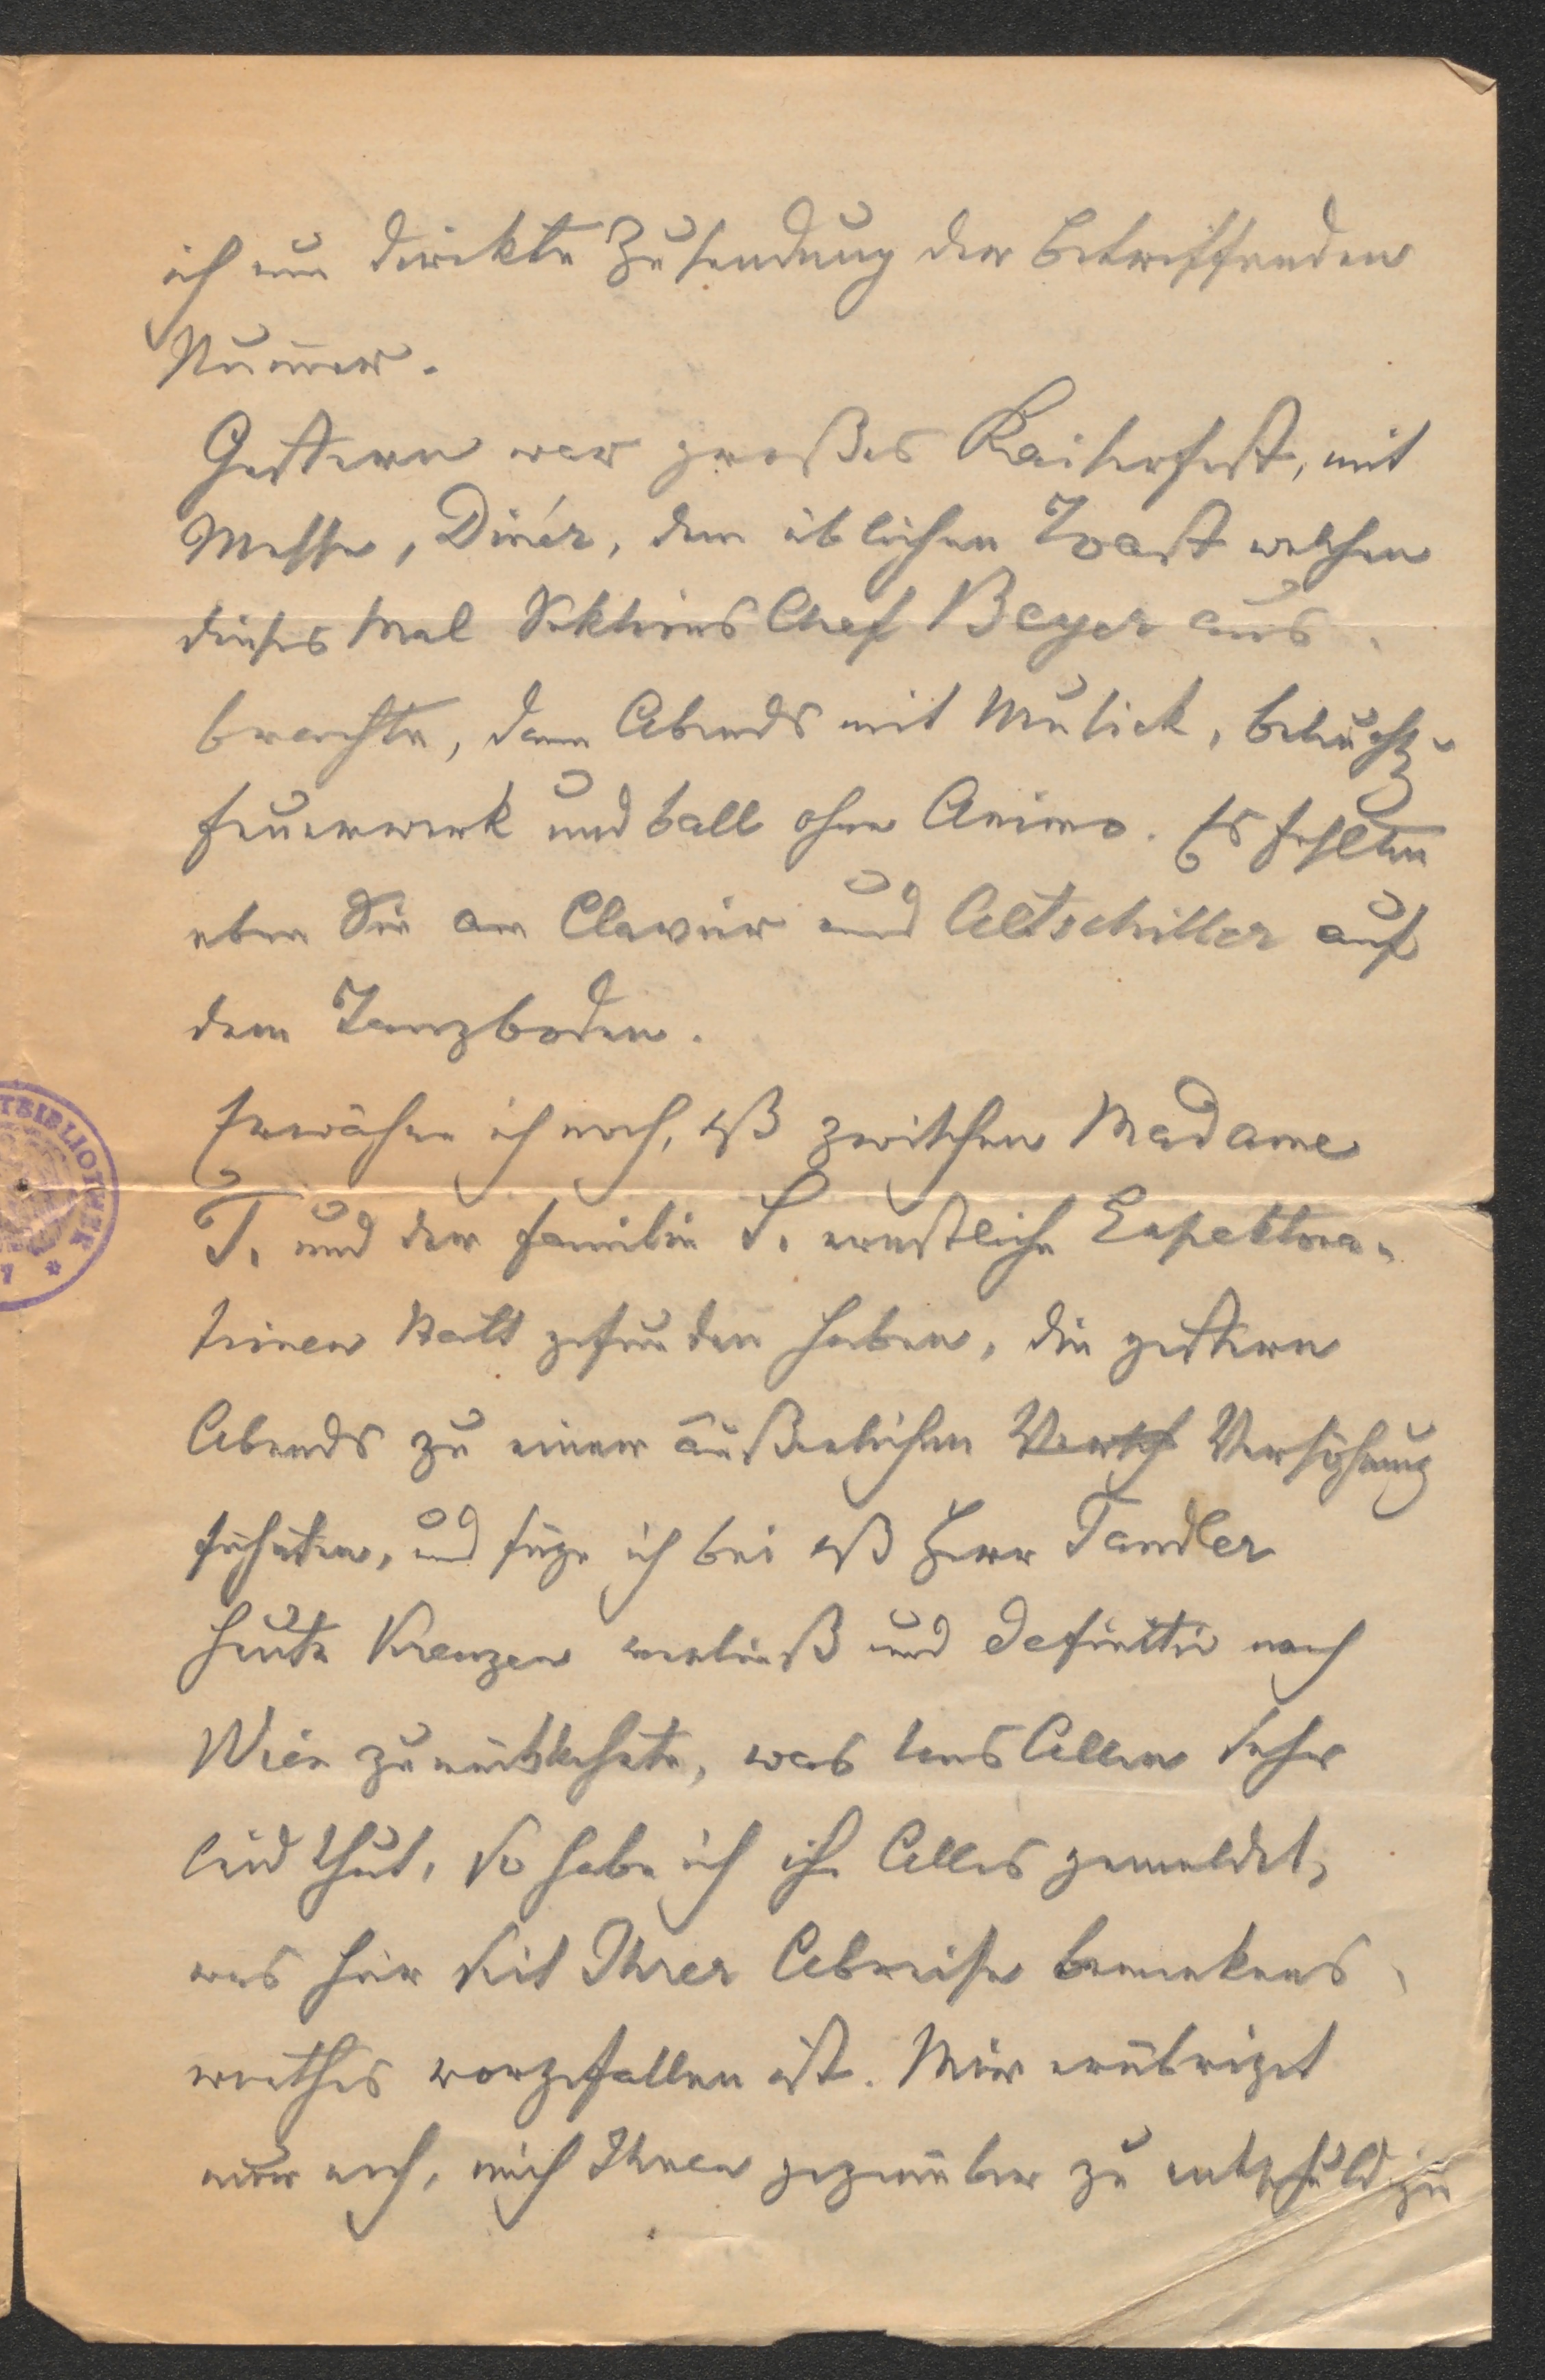 ich um direkte Zusendung der betreffenden
Num̅er.
Gestern war großes Kaiserfest, mit
Messe, Dinér, dem üblichen Toast welchen
dieses Mal Sektions Chef Beyer aus-
brachte, dann Abends mit Musick, Beleucht-
feuerwerk und Ball ohne Animo. Es fehlten
eben Sie am Clavier und Altschiller auf
dem Tanzboden.
Erwähne ich noch, daß zwischen Madame
T. und der Familie S. ernstliche Expektora-
tionen statt gefunden haben, die gestern
Abends zu einer äußerlichen Versöhnung
führten, und füge ich bei daß Herr Tandler
heute Kreuzen verließ und definitiv nach
Wien zurückkehrte, was uns Allen sehr
leid thut, so habe ich Alles gemeldet,
was hier seit Ihrer Abreise bemerkens-
werthes vorgefallen ist. Mir erübriget
nur noch, mich Ihnen gegenüber zu entschuldigen
TBIBLIOTHEK